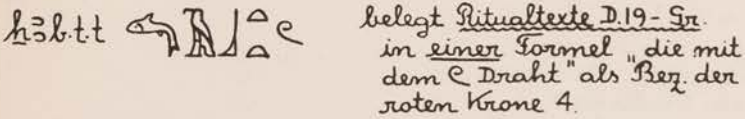 ẖꜣb.t.t 𓄡𓄿𓃀𓏏𓏏𓏲 belegt Ritualtexte D.19 - Gr.
in einer Formel „die mit
dem 𓏲 Draht" als Bez. der
roten Krone 4.